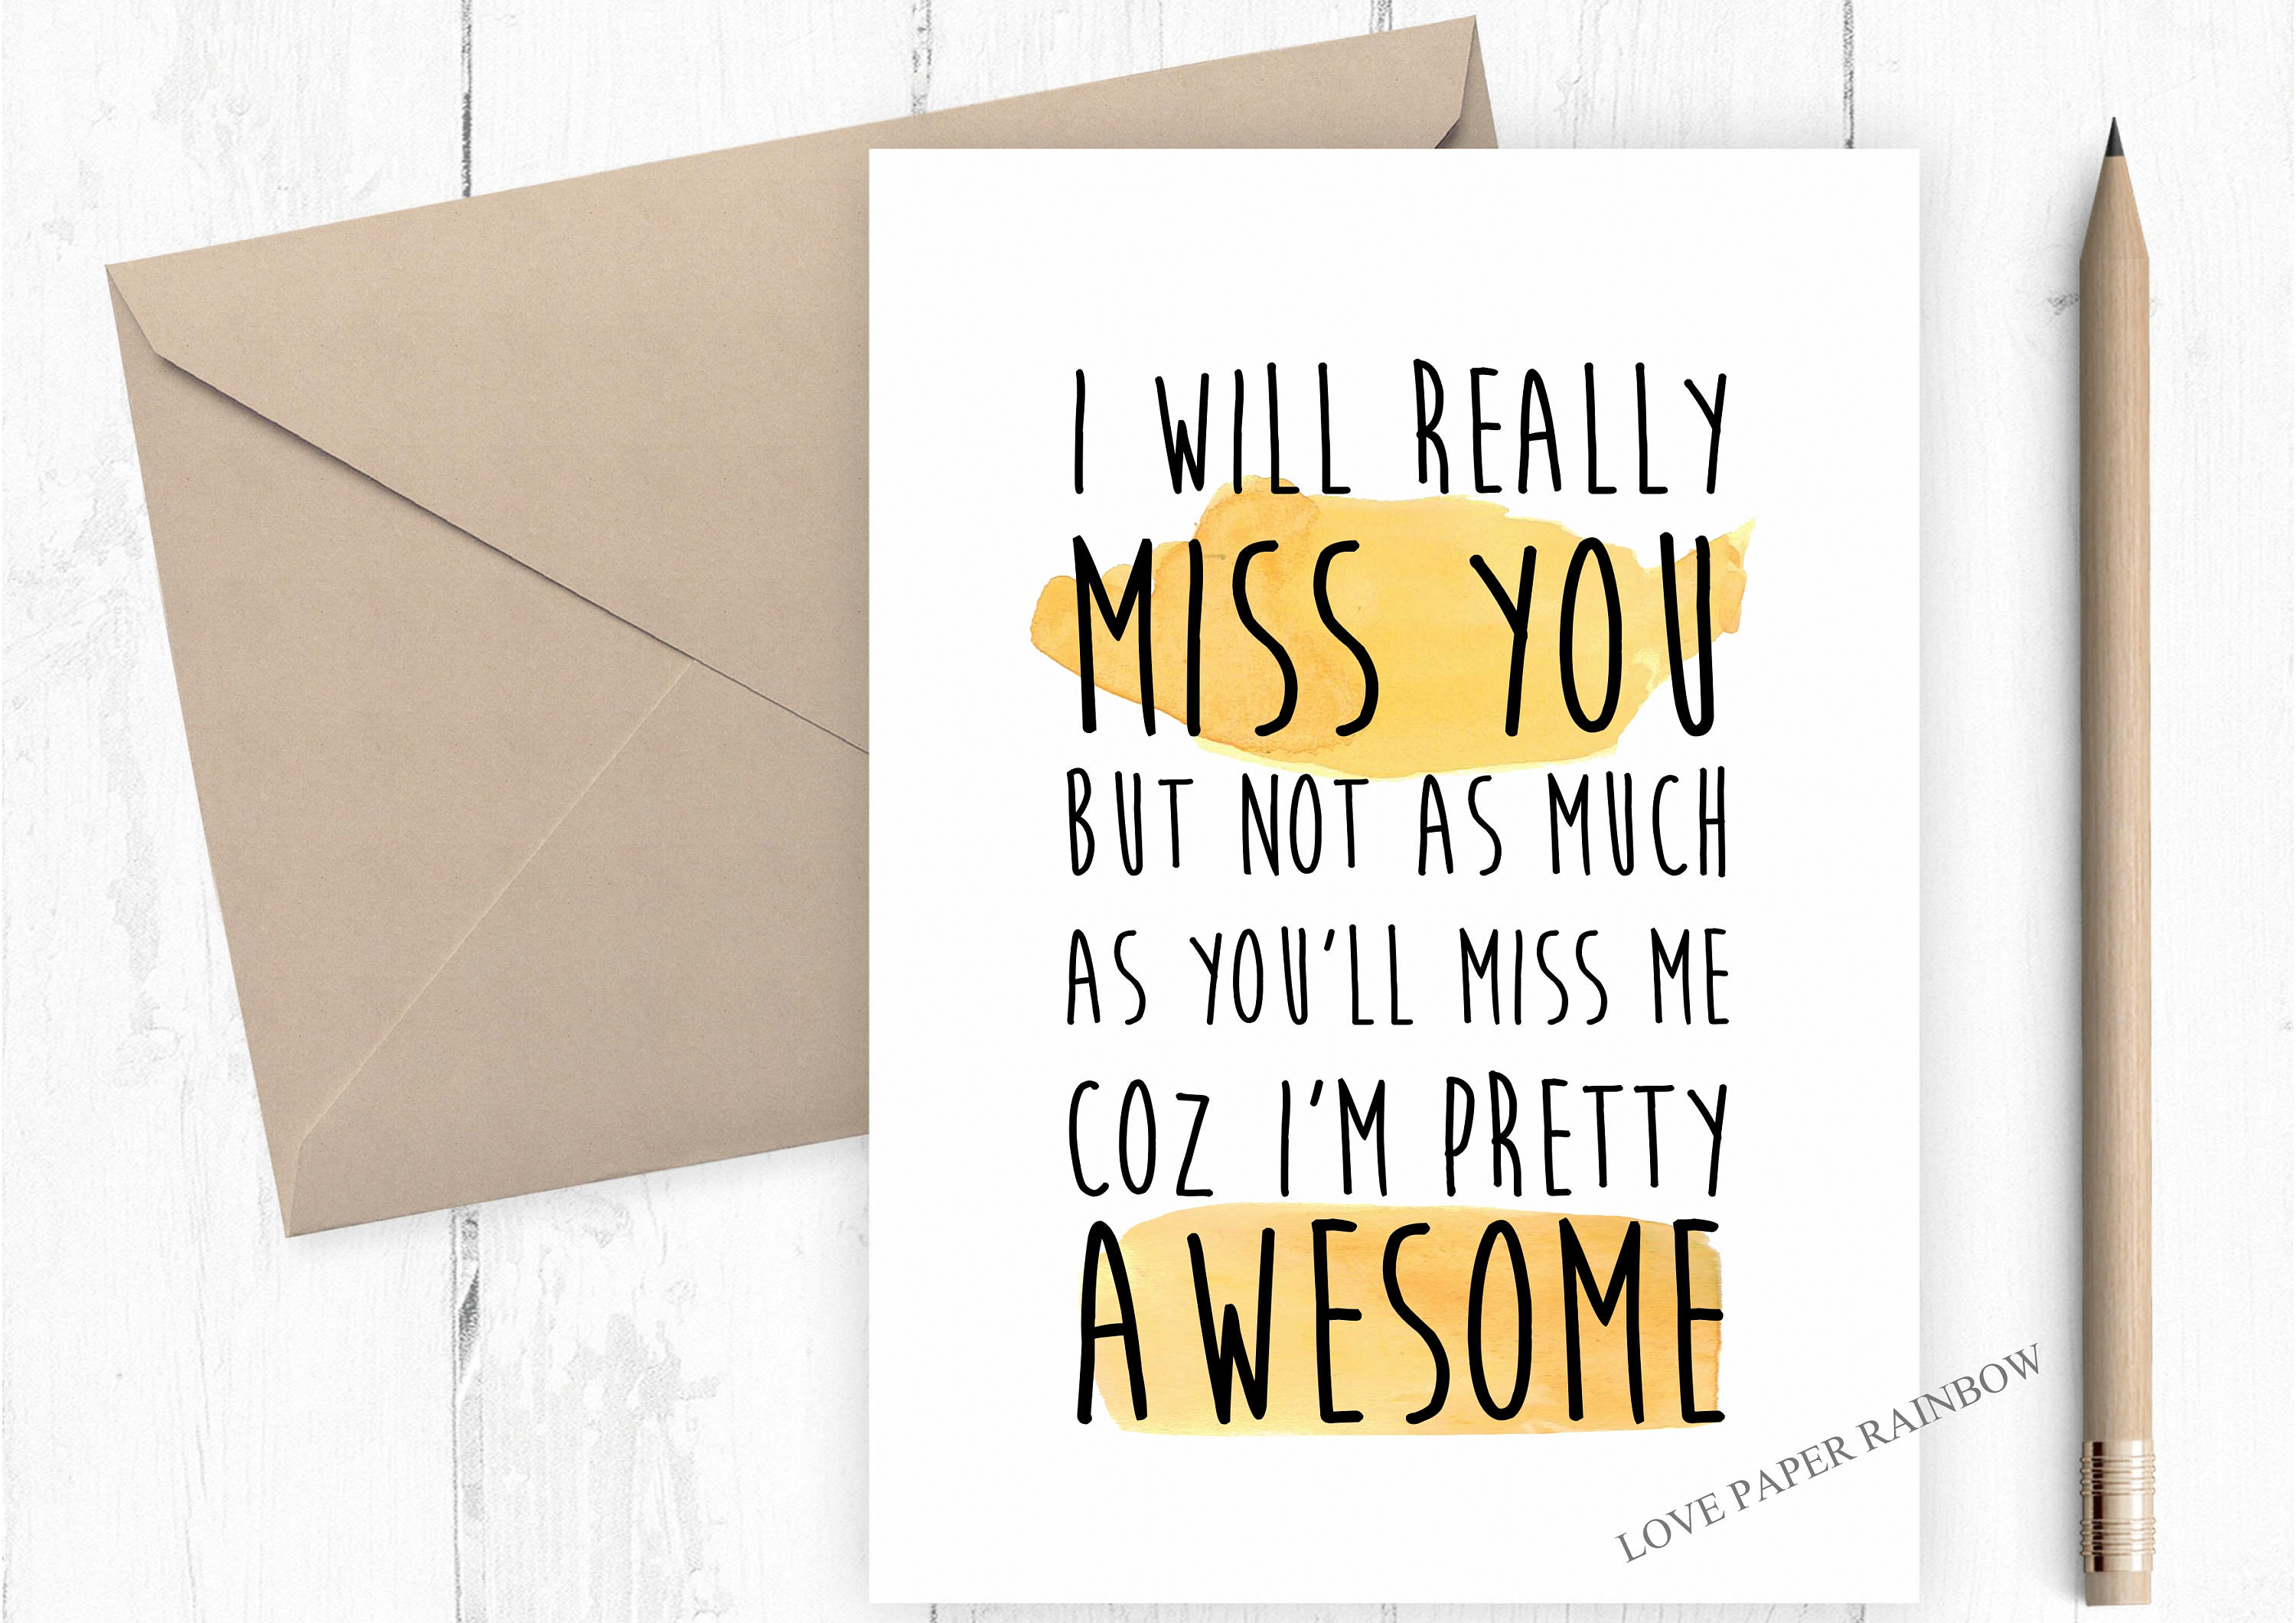 I WILL REALLY
MISS YOU
BUT NOT AS MUCH
AS YOU'LL MISS ME
COZ I'M PRETTY
AWESOME
LOVE PAPER RAINBOW